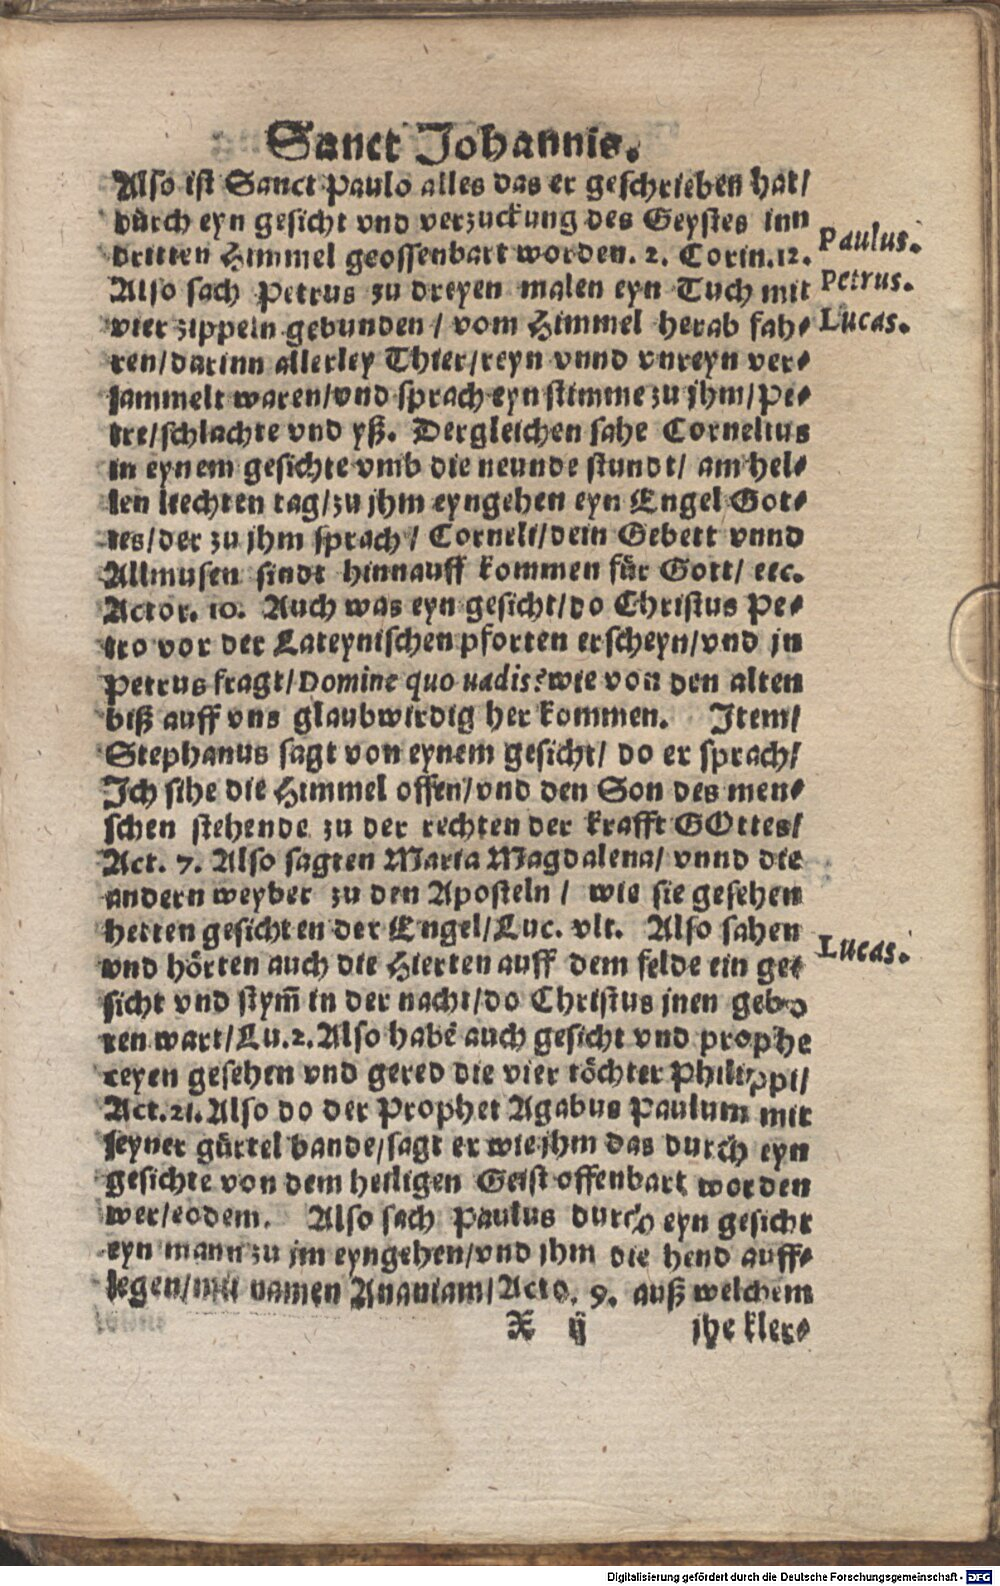 Sanct Johannis.
Also ist Sanct Paulo alles das er geschrieben hat/
durch eyn gesicht vnd verzuckung des Geystes inn
dritten Himmel geossenbart worden. 2. Corin. 12.
Paulus.
Also sach Petrus zu dreyen malen eyn Tuch mit
Petrus.
vier zippeln gebunden / vom Himmel herab fah-
Lucas.
ren/darinn allerley Thier/reyn vnnd vnreyn ver-
sammelt waren/vnd sprach eyn stimme zu jhm/Pe-
tre/schlachte vnd yß. Dergleichen sahe Cornelius
in eynem gesichte vmb die neunde stundt/ am hel-
len liechten tag/zu jhm eyngehen eyn Engel Got-
tes/der zu jhm sprach / Corneli/dein Gebett vnnd
Allmusen sindt hinnauff kommen für Gott/ etc.
Actor. 10. Auch was eyn gesicht/do Christus Pe-
tro vor der Lateynischen pforten erscheyn/vnd jn
Petrus fragt/Domine quo uadis? wie von den alten
biß auff vns glaubwirdig her kommen. Item/
Stephanus sagt von eynem gesicht/ do er sprach/
Ich sihe die Himmel offen/vnd den Son des men-
schen stehende zu der rechten der krafft GOttes/
Act. 7. Also sagten Maria Magdalena/ vnnd die
andern weyber zu den Aposteln / wie sie gesehen
hetten gesichten der Engel/Luc. vlt. Also sahen
vnd hörten auch die Hierten auff dem felde ein ge-
Lucas.
sicht vnd stym̃ in der nacht/do Christus jnen gebo
ren wart/Lu. 2. Also habē auch gesicht vnd prophe
ceyen gesehen vnd gered die vier töchter Philippi/
Act. 21. Also do der Prophet Agabus Paulum mit
seyner gürtel bande/sagt er wie jhm das durch eyn
gesichte von dem heiligen Geist offenbart worden
wer/eodem. Also sach Paulus durch eyn gesicht
eyn mann zu jm eyngehen/vnd jhm die hend auff-
legen/mit namen Ananiam/Acto. 9. auß welchem
X ij jhe kler-
Digitalisierung gefördert durch die Deutsche Forschungsgemeinschaft - DFG